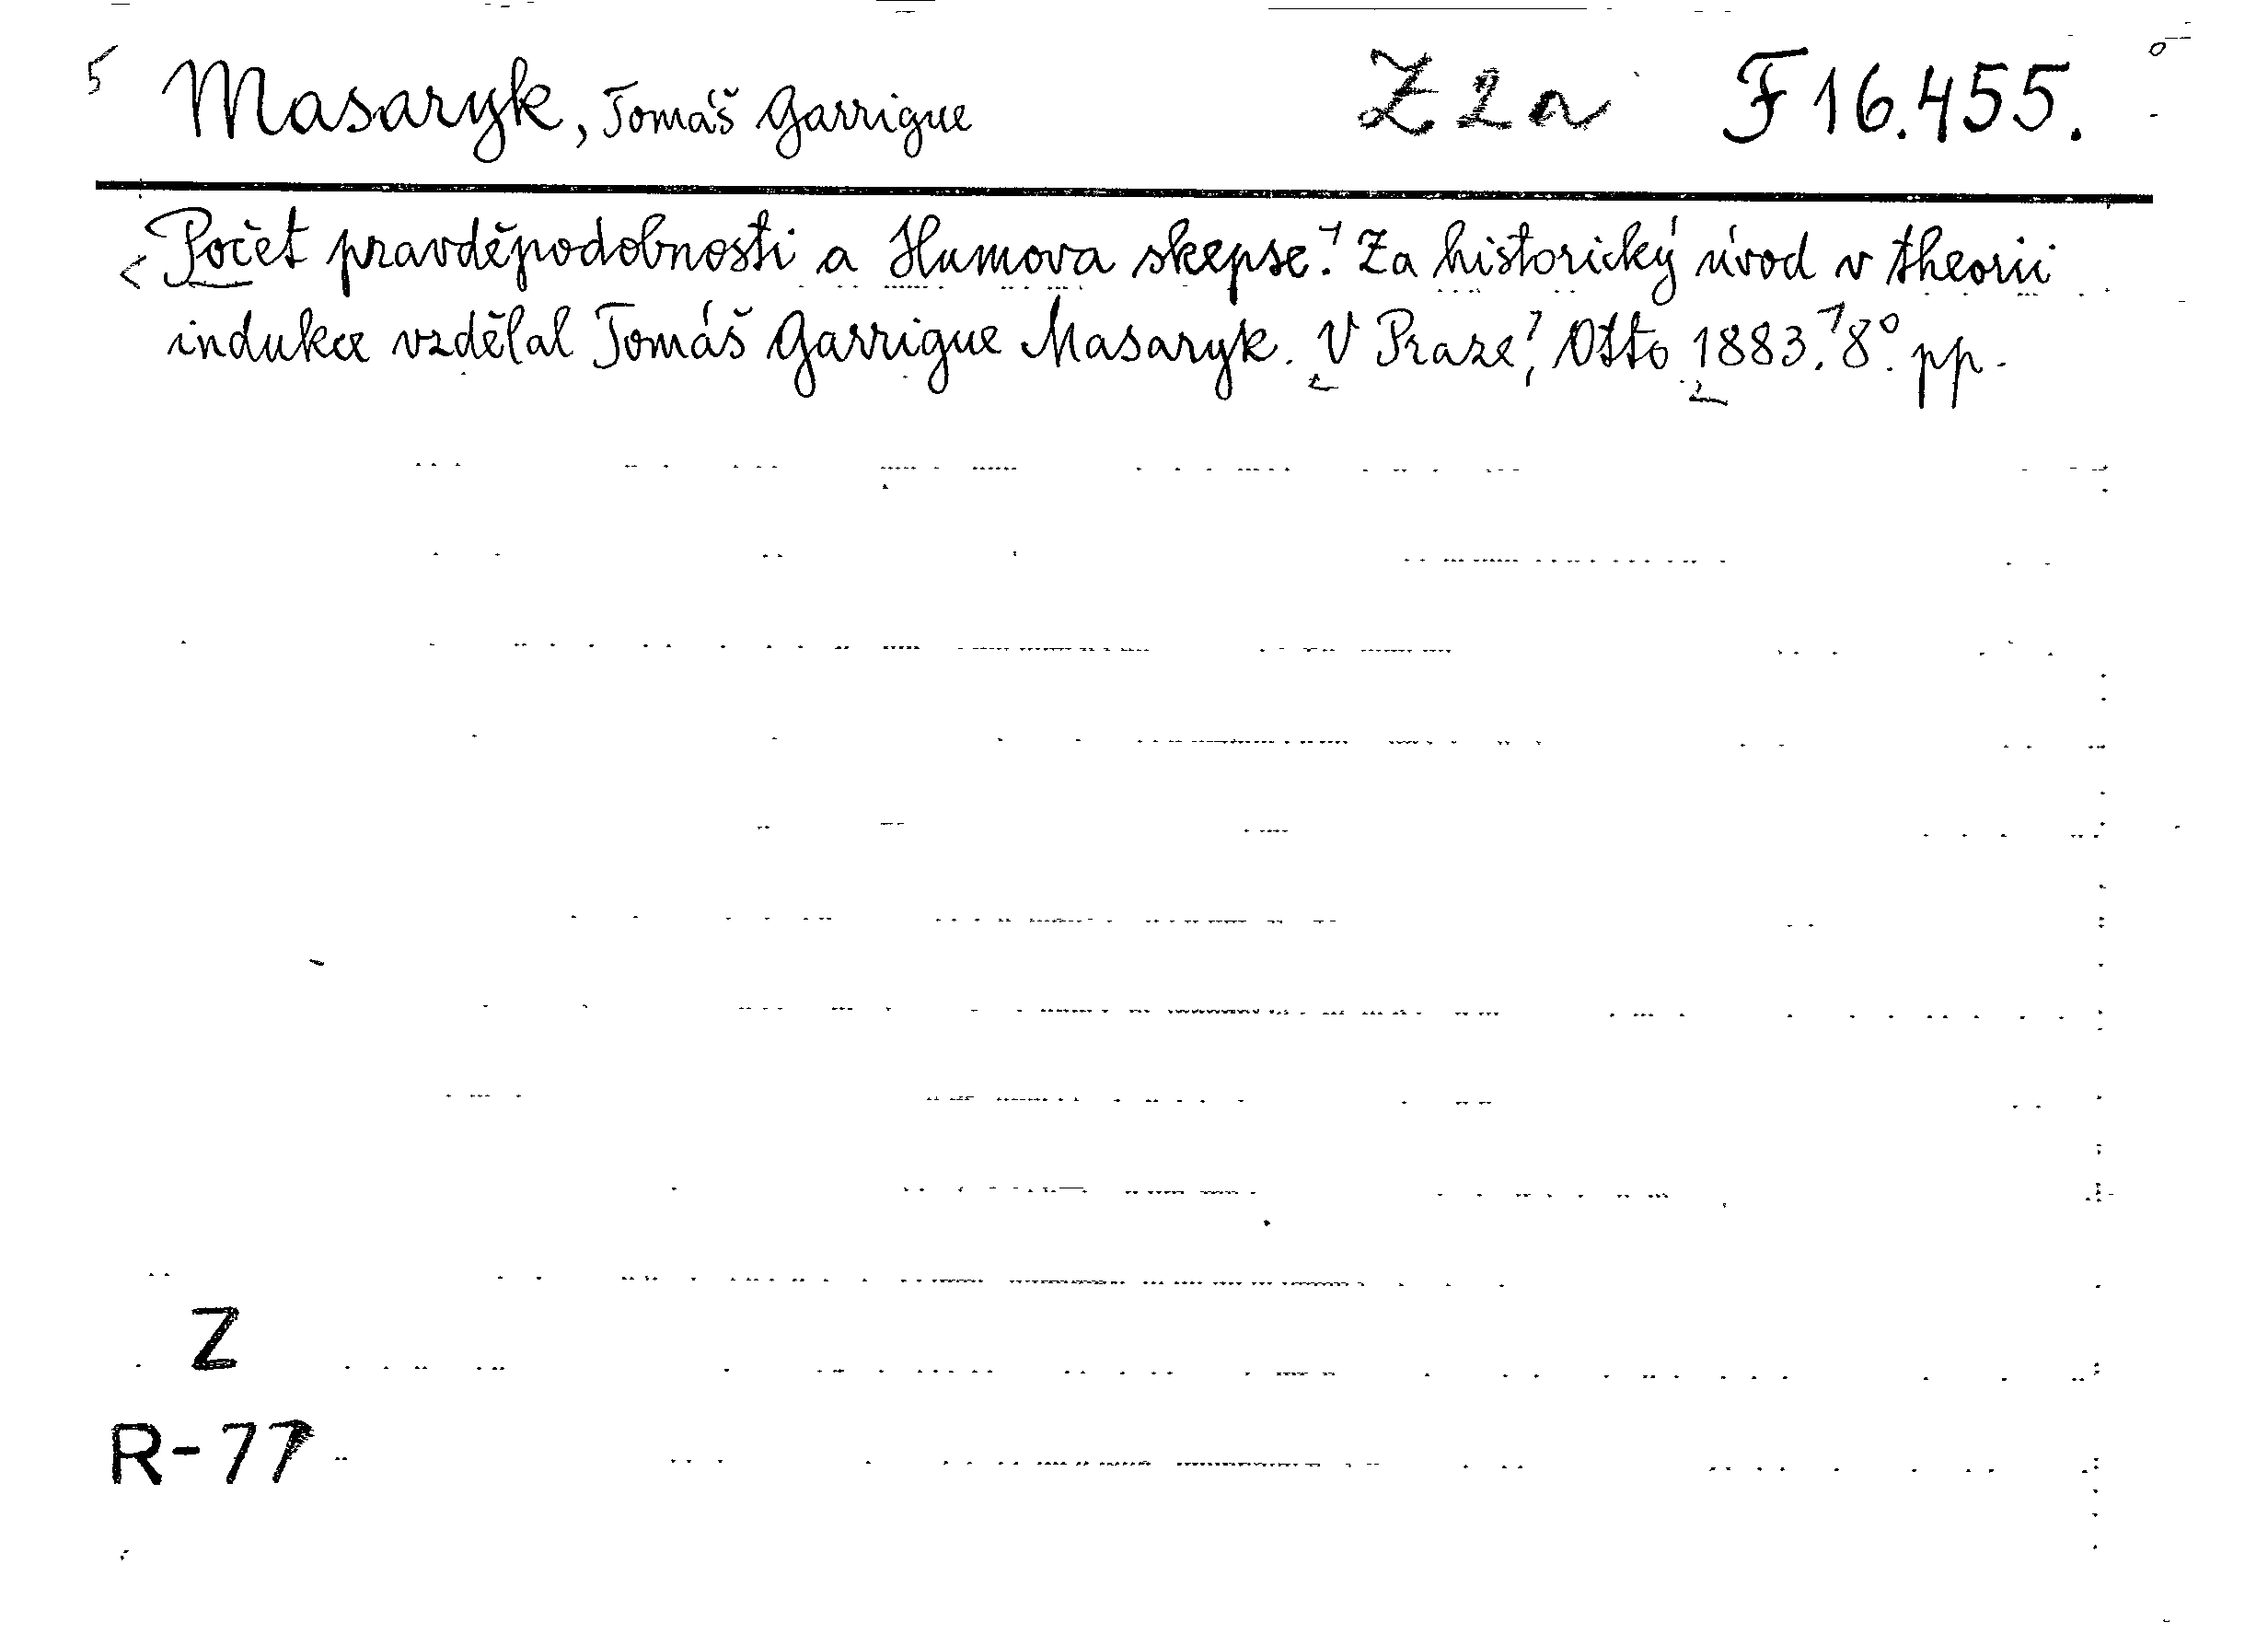 5 Masaryk, Tomáš Garrigue Z 2 a F 16.455.
Počet pravděpodobnosti a Humova skepse. Za historický úvod v theorii
indukce vzdělal Tomáš Garrigue Masaryk. V Praze, Otto 1883. 8°. pp.
Z
R-77